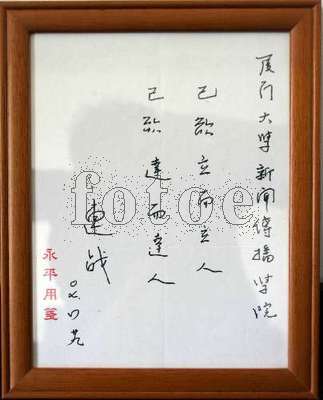 厦门大学新闻传播学院
己欲立而立人
己欲達而達人
連战
永平用笺
fotoe